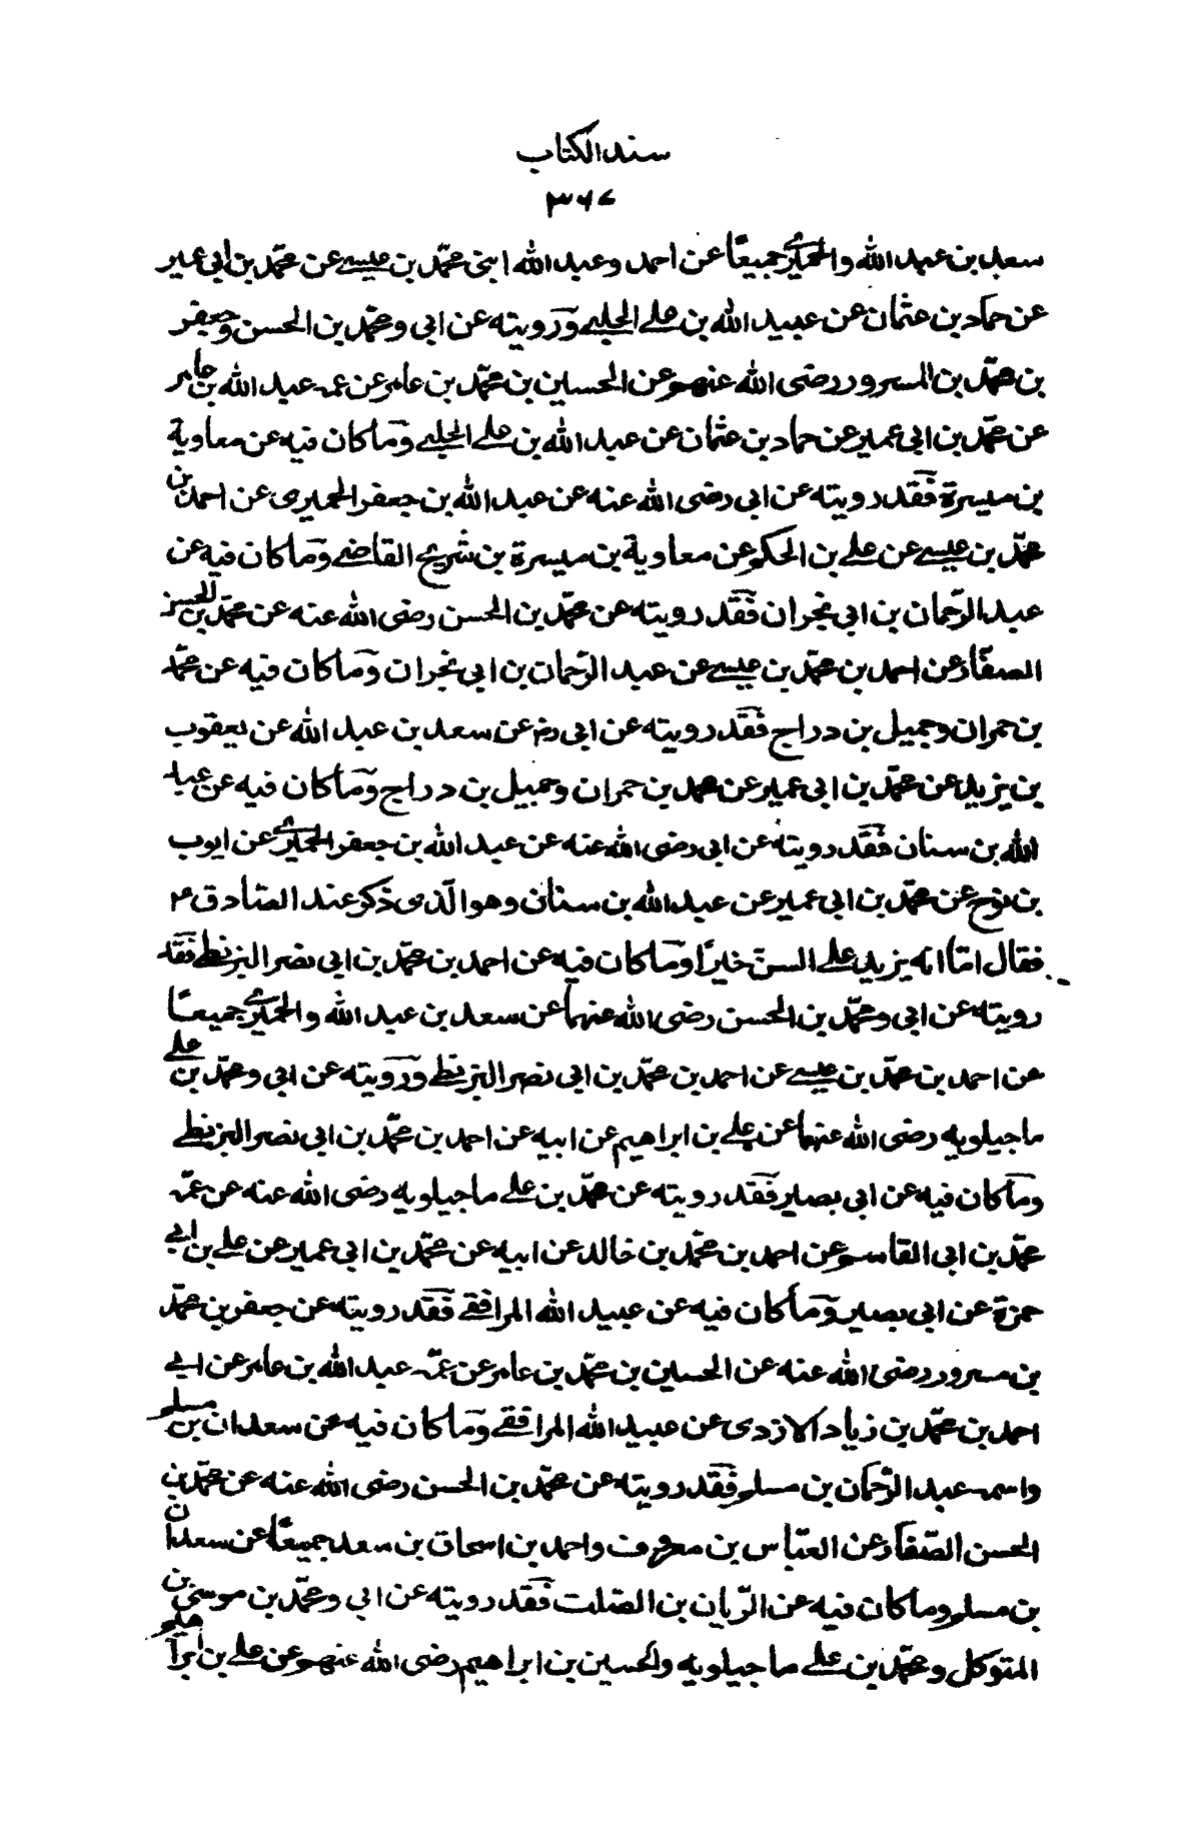 سند الكتاب
٣٦٧
سعد بن عبد الله والحميري جميعًا عن احمد وعبد الله ابنى محمّد بن عيسے عن محمّد بن ابى عمير
عن حماد بن عثمان عن عبيد الله بن علے الحلبے وَرَويته عن ابى ومحمّد بن الحسن وجعفر
بن محمّد بن المسرور رضى الله عنهم عن الحسين بن محمّد بن عامر عن عمه عبد الله بن عامر
عن محمّد بن ابى عمير عن حماد بن عثمان عن عبد الله بن علے الحلبے وَمَا كان فيه عن معاوية
بن ميسرة فَقَد رويته عن ابى رضى الله عنه عن عبد الله بن جعفر الحميرى عن احمد بن
محمّد بن عيسے عن علے بن الحكم عن معاوية بن ميسرة بن شريح القاضے وَمَا كان فيه عن
عبد الرّحمان بن ابى نجران فَقَد رويته عن محمّد بن الحسن رضى الله عنه عن محمّد بن الحسن
الصفّار عن احمد بن محمّد بن عيسے عن عبد الرّحمان بن ابى نجران وَمَا كان فيه عن محمّد
بن حمران وجميل بن دراج فَقَد رويته عن ابى رض عن سعد بن عبد الله عن يعقوب
بن يزيد عن محمّد بن ابى عمير عن محمد بن حمران وجميل بن دراج وَمَا كان فيه عن عبد
الله بن سنان فَقَد رويته عن ابى رضى الله عنه عن عبد الله بن جعفر الحميرے عن ايوب
بن نوح عن محمّد بن ابى عمير عن عبد الله بن سنان وهو الّذى ذكر عند الصّادق ع
فقال امّا انه يزيد علے السن خيرًا وَمَا كان فيه عن احمد بن محمّد بن ابى نصر البزنطے فَقَد
رويته عن ابى ومحمّد بن الحسن رضى الله عنهما عن سعد بن عبد الله والحميرے جميعًا
عن احمد بن محمّد بن عيسے عن احمد بن محمّد بن ابى نصر البزنطے وَرَويته عن ابى ومحمّد بن علے
ماجيلويه رضى الله عنهما عن علے بن ابراهيم عن ابيه عن احمد بن محمّد بن ابى نصر البزنطے
وَمَا كان فيه عن ابى بصير فَقَد رويته عن محمّد بن علے ماجيلويه رضى الله عنه عن عمّه
محمّد بن ابى القاسم عن احمد بن محمّد بن خالد عن ابيه عن محمّد بن ابى عمير عن علے بن ابى
حمزة عن ابى بصير وَمَا كان فيه عن عبيد الله المرافقے فَقَد رويته عن جعفر بن محمّد
بن مسرور رضى الله عنه عن الحسين بن محمّد بن عامر عن عمّه عبد الله بن عامر عن ابے
احمد بن محمّد بن زياد الازدى عن عبيد الله المرافقے وَمَا كان فيه عن سعدان بن مسلم
واسمه عبد الرّحمان بن مسلم فَقَد رويته عن محمّد بن الحسن رضى الله عنه عن محمّد بن
الحسن الصّفار عن العبّاس بن معروف واحمد بن اسحاق بن سعد جميعًا عن سعدان
بن مسلم وما كان فيه عن الرّيان بن الصّلت فَقَد رويته عن ابى ومحمّد بن موسى بن
المتوكل ومحمّد بن علے ماجيلويه والحسين بن ابراهيم رضى الله عنهم عن علے بن ابراهيم